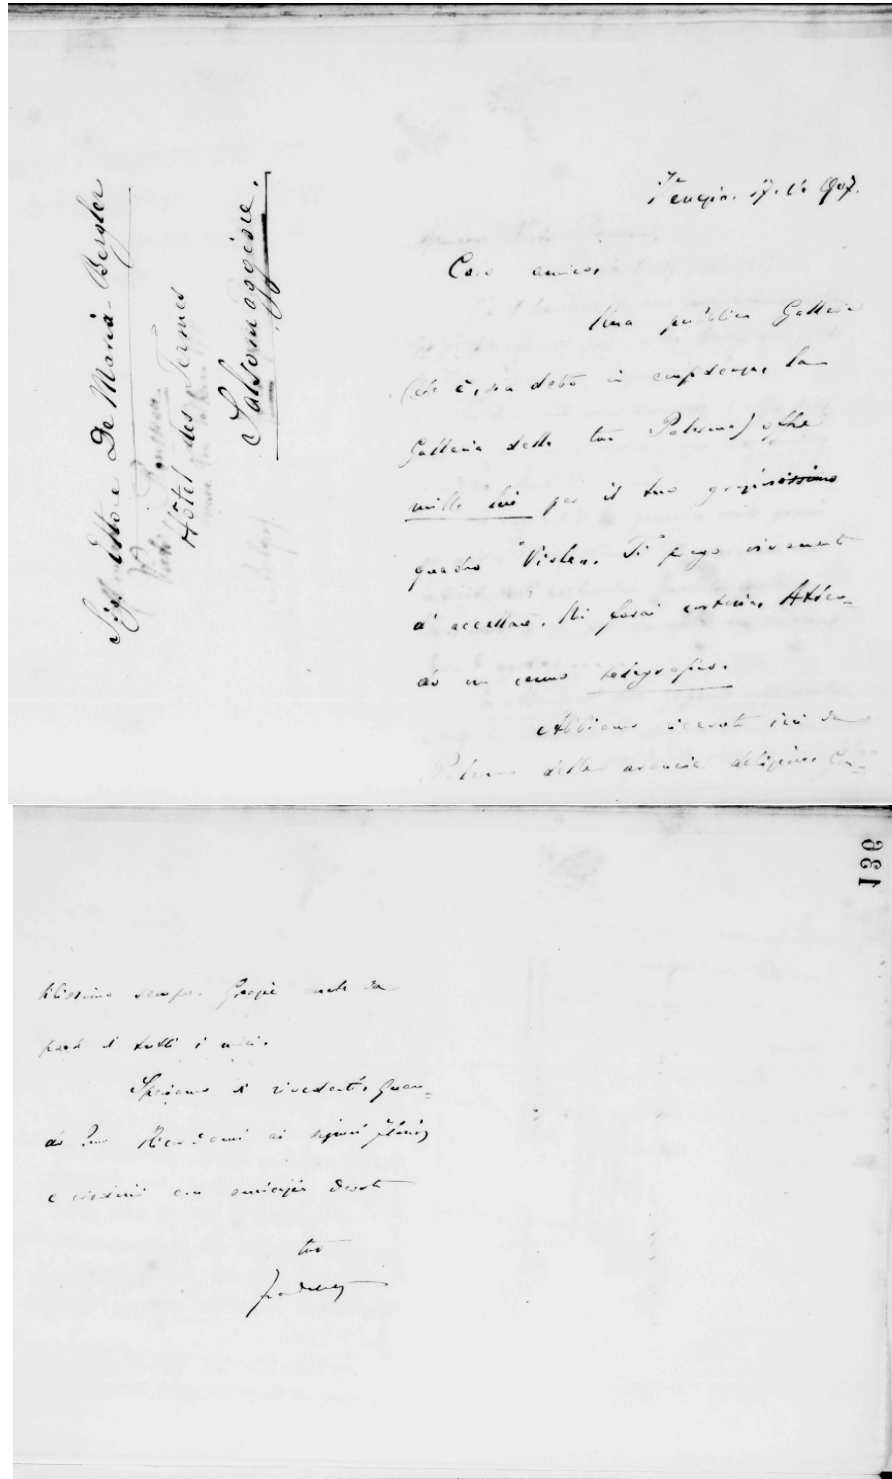 Sig. Ettore De Maria-Bergler
Hôtel des Termes
Salsomaggiore.
Venezia. 17. 1907.
Caro amico,
Una pubblica Galleria
(che è, sia detto in confidenza, la
Galleria della tua Palermo) offre
mille lire per il tuo graziosissimo
quadro Violea. Ti prego vivamente
di accettare. Mi farai cortesia. Atten-
do un cenno telegrafico.
Abbiamo ricevuto ieri da
Palermo delle arancie deliziose. Gen-
tilissimo sempre. Grazie anche da
parte di tutti i miei.
Speriamo di rivederti. Quan-
do? Ricordami ai signori
e credimi con amicizia devota
tuo
136